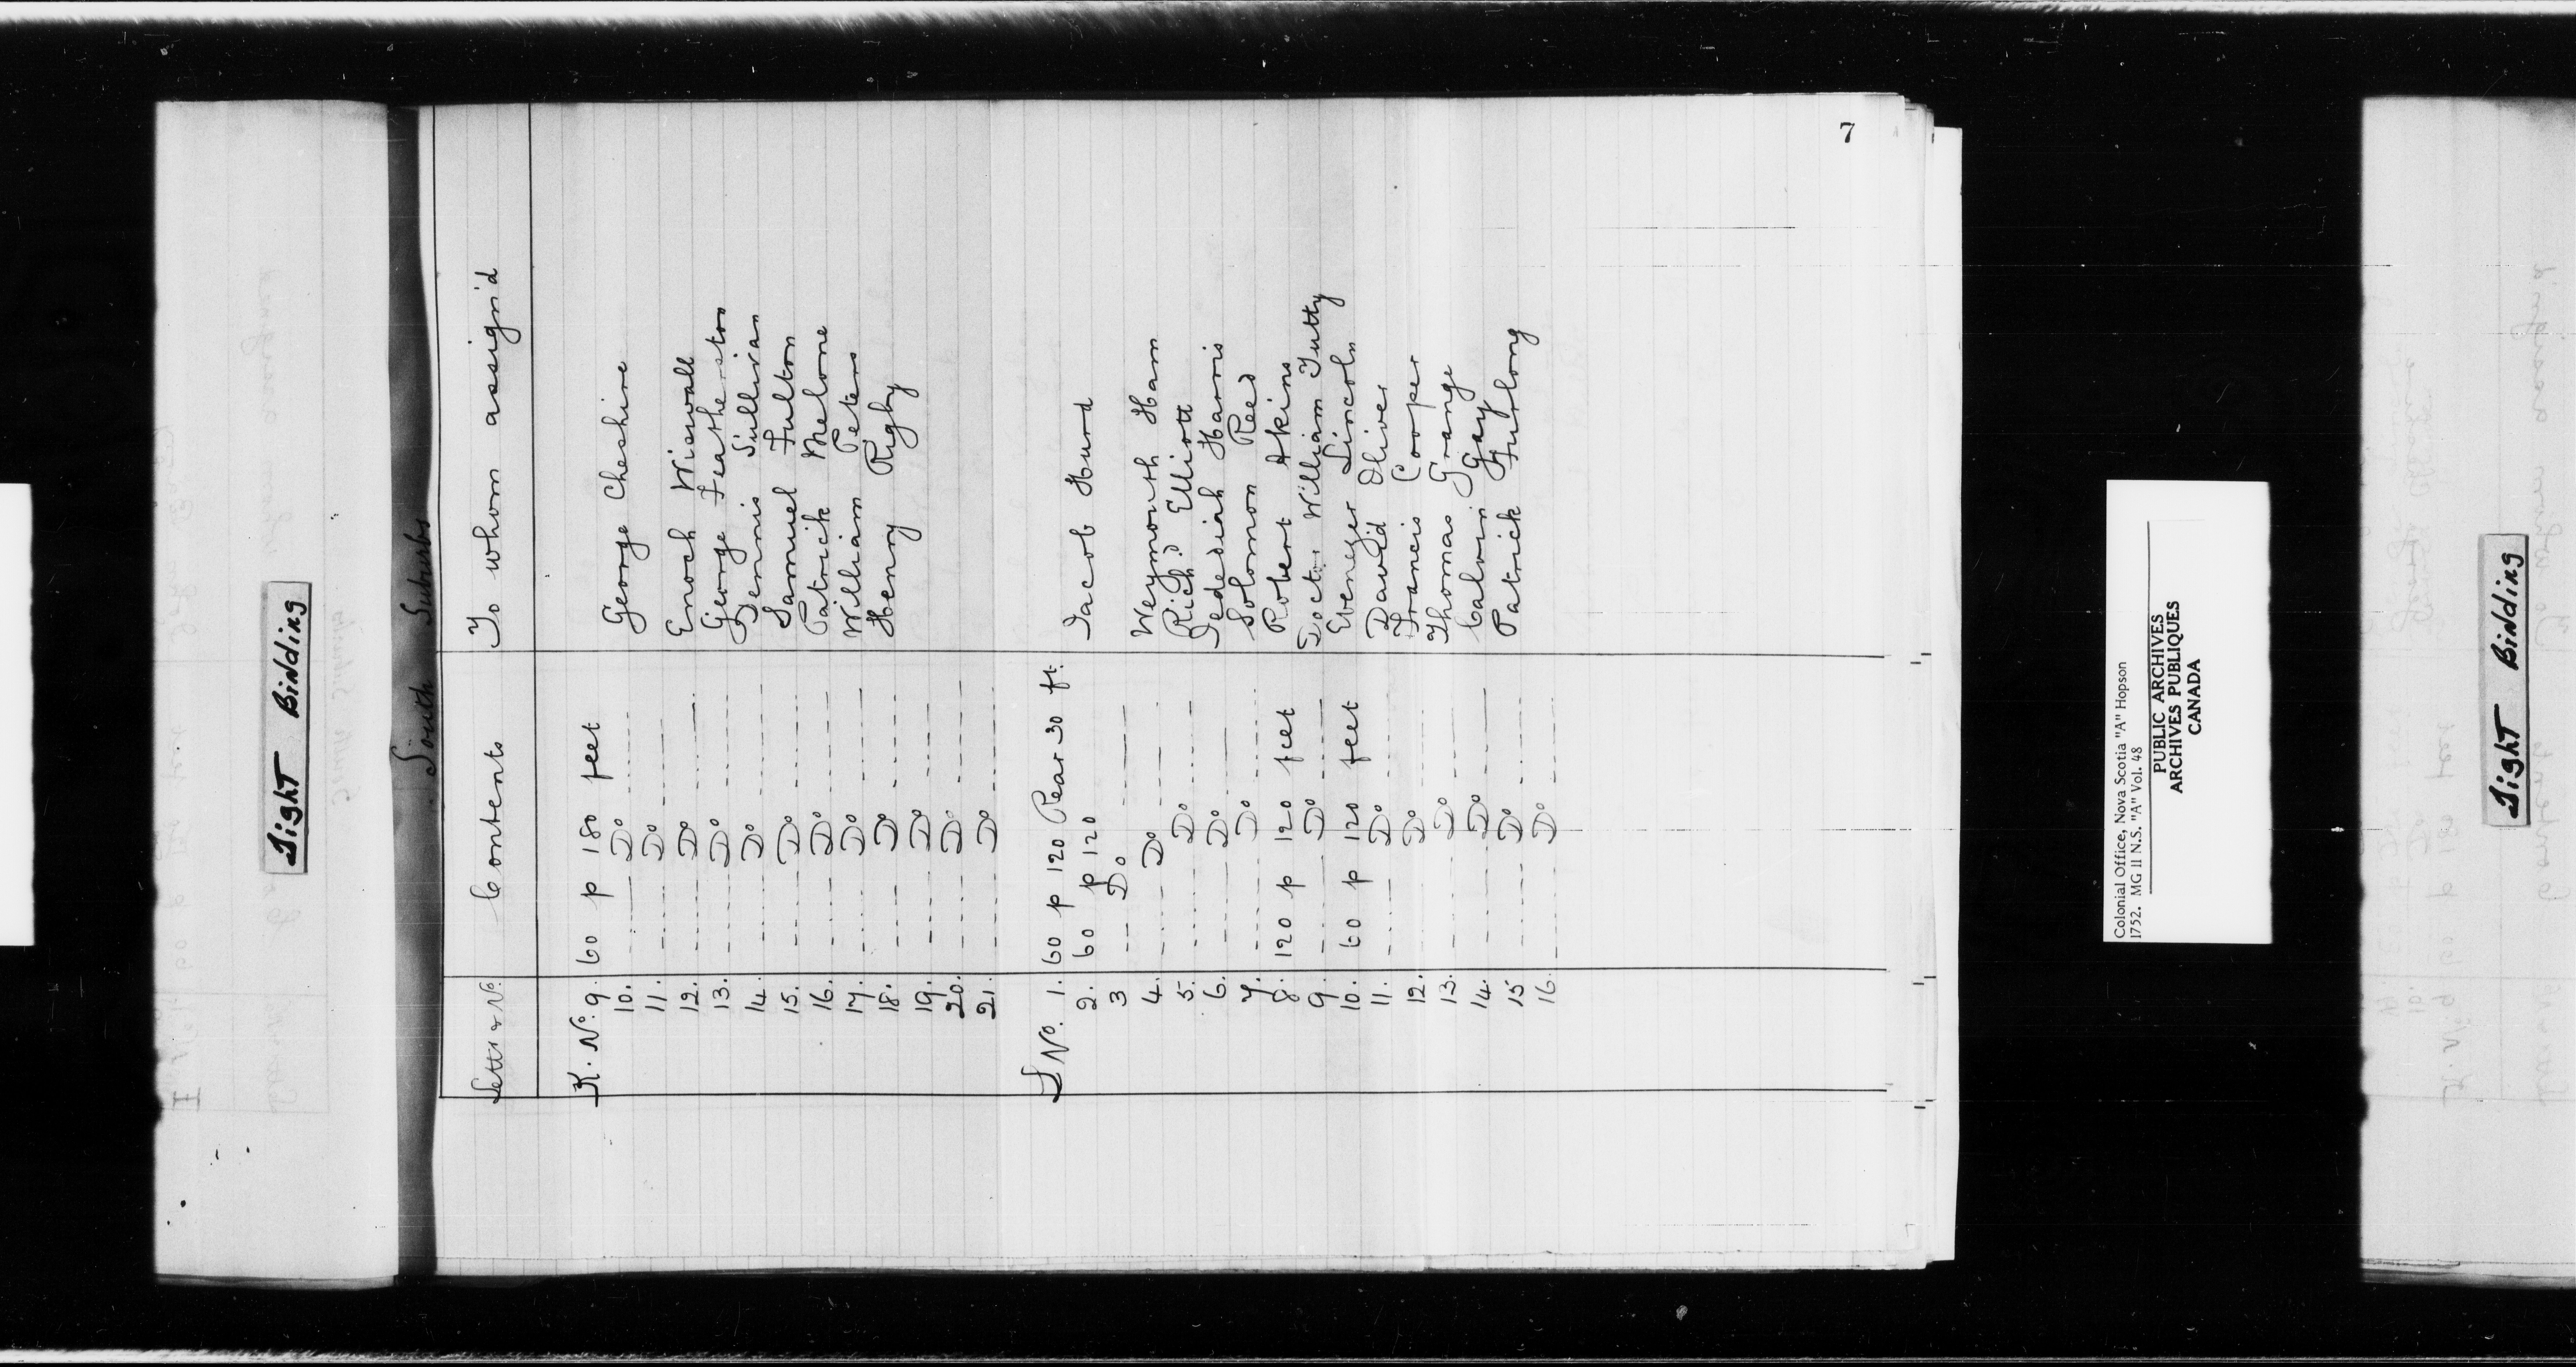 Tight Binding
South Suburbs
Letts & No. Contents To whom assign'd
K. No. 9. 60 p 180 feet
10. Do George Cheshire
11. Do
12. Do Enoch Wiswall
13. Do George Featherston
14. Do Dennis Sullivan
15. Do Samuel Fulton
16. Do Patrick Melone
17. Do William Peters
18. Do Henry Rigby
19. Do
20. Do
21. Do
L No. 1. 60 p 120 Rear 30 ft.
2. 60 p 120 Jacob Hurd
3 Do
4. Do Weymouth Ham
5. Do Rich.d Elliott
6. Do Jedediah Harris
7. Do Solomon Reed
8. 120 p 120 feet Robert Akins
9. Do Doctor William Tutty
10. 60 p 120 feet Ebenezer Lincoln
11. Do David Oliver
12. Do Francis Cooper
13. Do Thomas Grange
14. Do Calvin Gay
15 Do Patrick Furlong
16. Do
7
Colonial Office, Nova Scotia "A" Hopson
1752. MG 11 N.S. "A" Vol. 48
PUBLIC ARCHIVES
ARCHIVES PUBLIQUES
CANADA
Tight Binding